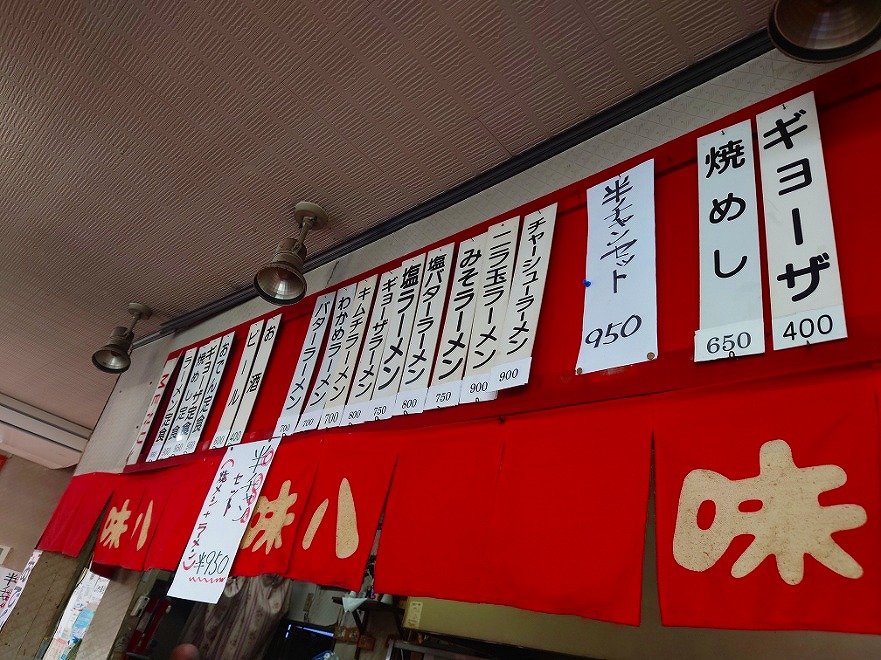 ギョーザ
400
焼めし
650
半チャンセット
950
チャーシューラーメン
900
ニラ玉ラーメン
900
みそラーメン
750
塩バターラーメン
800
塩ラーメン
750
ギョーザラーメン
800
キムチラーメン
700
わかめラーメン
700
バターラーメン
700
お酒
400
ビール
おでん定食
ギョーザ定食
焼めし定食
ラーメン定食
MENU
半チャン
セット
焼メシ+ラーメン
半950
味八
味八
味